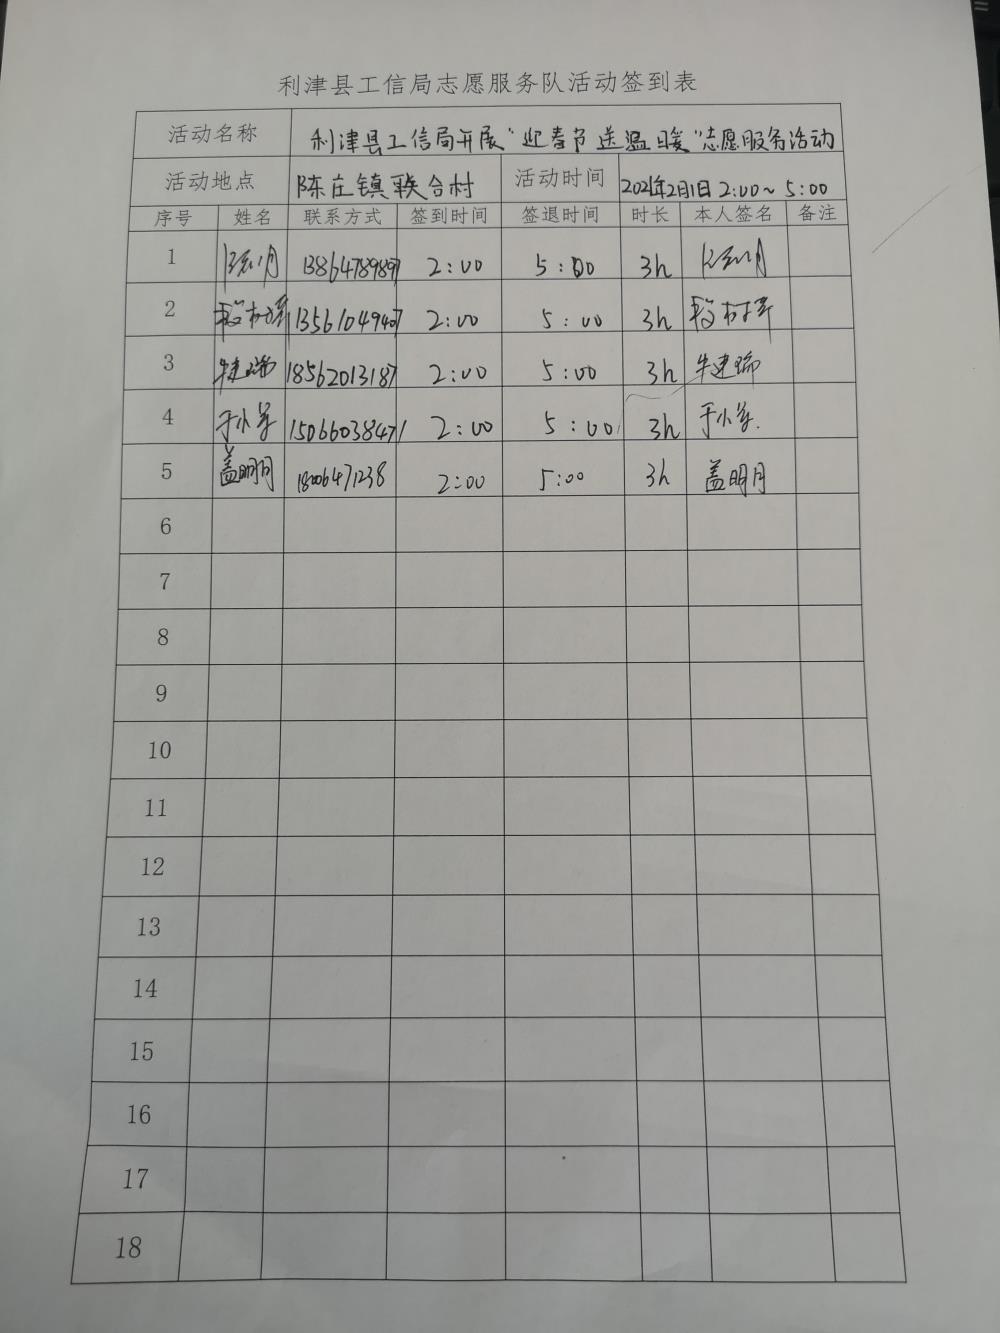 利津县工信局志愿服务队活动签到表
活动名称 利津县工信局开展"迎春节送温暖"志愿服务活动
活动地点 陈庄镇联合村 活动时间 2021年2月1日 2:00~5:00
序号 姓名 联系方式 签到时间 签退时间 时长 本人签名 备注
1 13864789897 2:00 5:00 3h
2 13561049407 2:00 5:00 3h
3 牛建瑞 18562013187 2:00 5:00 3h 牛建瑞
4 于小军 15066038471 2:00 5:00 3h 于小军
5 盖明月 18006471238 2:00 5:00 3h 盖明月
6
7
8
9
10
11
12
13
14
15
16
17
18